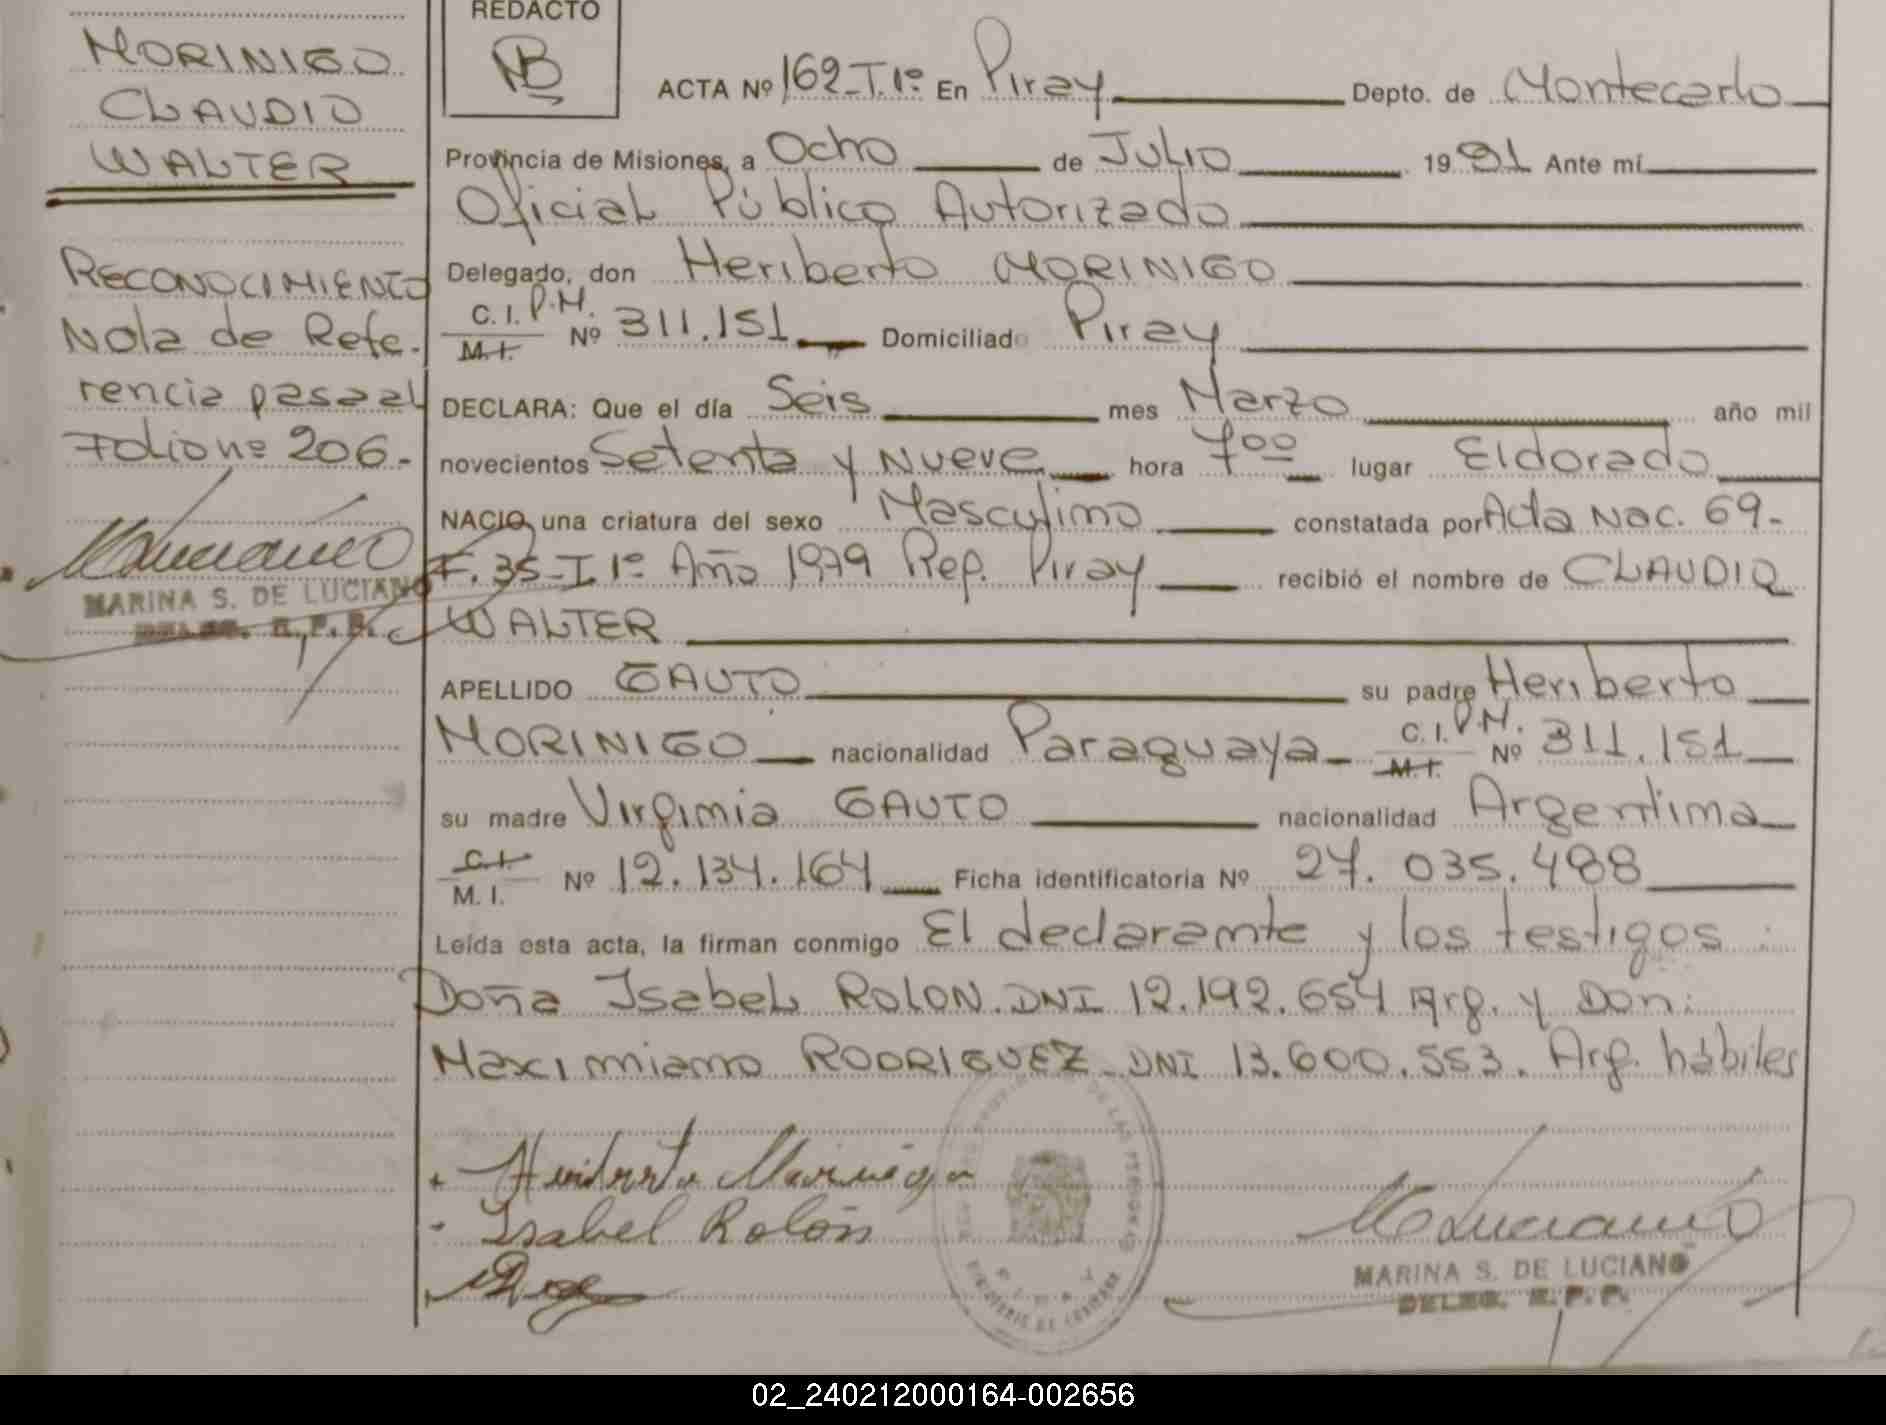 MORINIGO
CLAUDIO
WALTER
RECONOCIMIENTO
Nota de Refe-
rencia pasa al
Folio nº 206.-
MARINA S. DE LUCIANO
DELEG. R.P.P.
REDACTO
ACTA Nº 162-T.1º En Piray Depto. de Montecarlo
Provincia de Misiones, a Ocho de Julio 1991 Ante mí
Oficial Público Autorizado
Delegado, don Heriberto MORINIGO
C. I. P.M. M.I. Nº 311.151 Domiciliado Piray
DECLARA: Que el día Seis mes Marzo año mil
novecientos Setenta y Nueve hora 7 00 lugar Eldorado
NACIO una criatura del sexo Masculino constatada por Acta Nac. 69-
F. 35-T.1º Año 1979 Rep. Piray recibió el nombre de CLAUDIO
WALTER
APELLIDO GAUTO su padre Heriberto
MORINIGO nacionalidad Paraguaya C. I. P.M. M.I. Nº 311.151
su madre Virginia GAUTO nacionalidad Argentina
C.I. M. I. Nº 12.134.164 Ficha identificatoria Nº 27.035.488
Leída esta acta, la firman conmigo El declarante y los testigos:
Doña Isabel ROLON. DNI 12.192.654 Arg. y Don:
Maximiano RODRIGUEZ. DNI 13.600.553. Arg. hábiles
Heriberto Morinigo
Isabel Rolón
MARINA S. DE LUCIANO
DELEG. R.P.P.
02_240212000164-002656